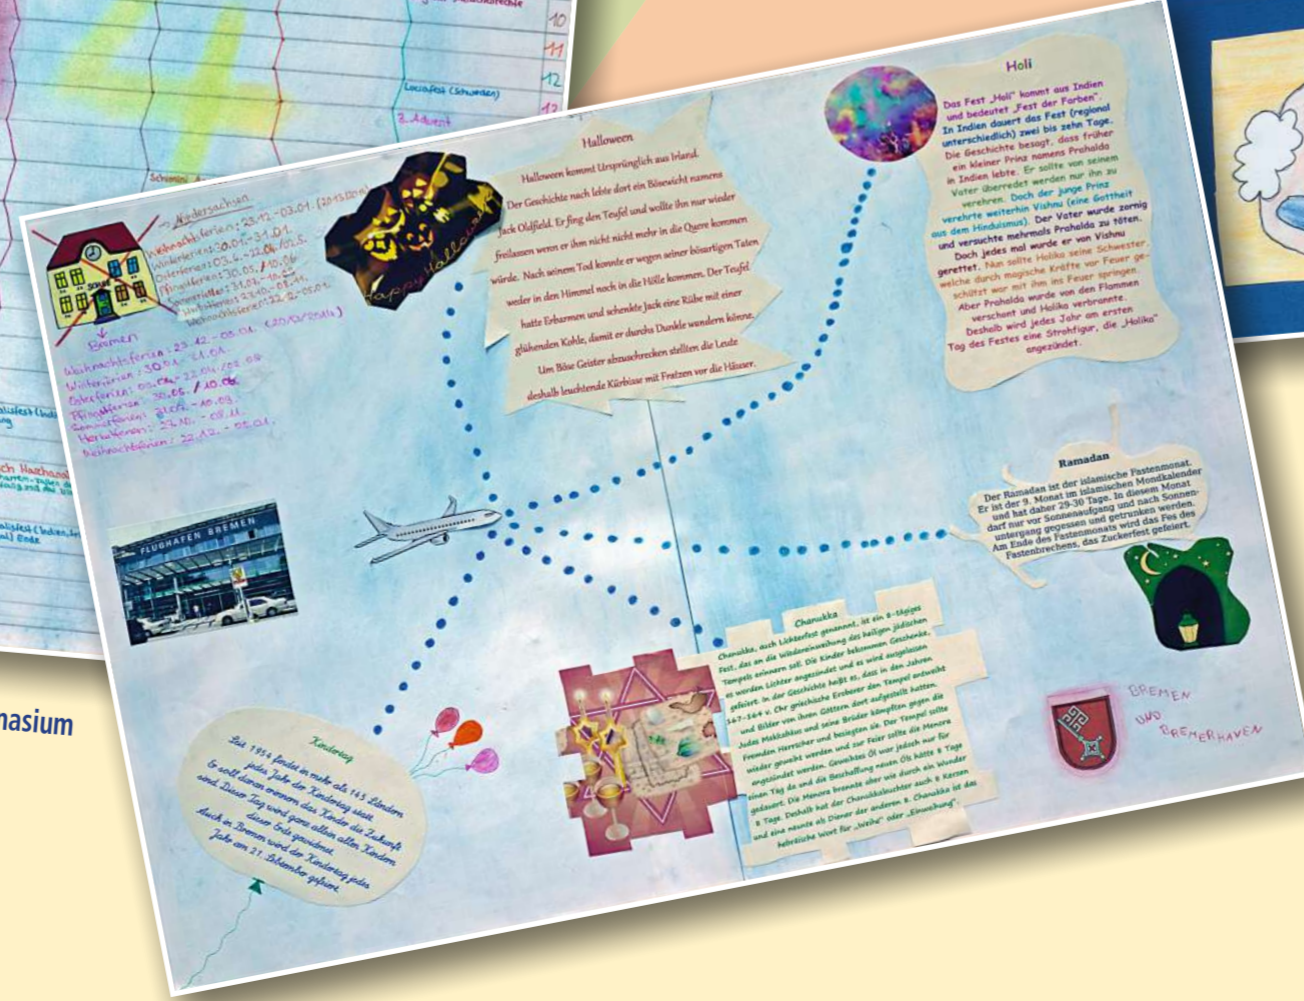 10
11
12
Luciafest (Schweden)
3. Advent
nasium
Niedersachsen
Weihnachtsferien: 23.12.-03.01.
Winterferien: 30.01.-31.01.
Bremen
Weihnachtsferien: 23.12.-03.01. (2013/2014)
Herbstferien: 27.10. - 08.11.
Weihnachtsferien: 22.12. - 05.01.
SCHULE
Happy Halloween
Halloween
Halloween kommt Ursprünglich aus Irland.
Der Geschichte nach lebte dort ein Bösewicht namens
Jack Oldfield. Er fing den Teufel und wollte ihn nur wieder
freilassen wenn er ihm nicht nicht mehr in die Quere kommen
würde. Nach seinem Tod konnte er wegen seiner bösartigen Taten
weder in den Himmel noch in die Hölle kommen. Der Teufel
hatte Erbarmen und schenkte Jack eine Rübe mit einer
glühenden Kohle, damit er durchs Dunkle wandern könne.
Um Böse Geister abzuschrecken stellten die Leute
deshalb leuchtende Kürbisse mit Fratzen vor die Häuser.
Holi
Das Fest „Holi“ kommt aus Indien
und bedeutet „Fest der Farben“.
In Indien dauert das Fest (regional
unterschiedlich) zwei bis zehn Tage.
Die Geschichte besagt, dass früher
ein kleiner Prinz namens Prahalda
in Indien lebte. Er sollte von seinem
Vater überredet werden nur ihn zu
verehren. Doch der junge Prinz
verehrte weiterhin Vishnu (eine Gottheit
aus dem Hinduismus). Der Vater wurde zornig
und versuchte mehrmals Prahalda zu töten.
Doch jedes mal wurde er von Vishnu
gerettet. Nun sollte Holika seine Schwester,
welche durch magische Kräfte vor Feuer ge-
schützt war mit ihm ins Feuer springen.
Aber Prahalda wurde von den Flammen
verschont und Holika verbrannte.
Deshalb wird jedes Jahr am ersten
Tag des Festes eine Strohfigur, die „Holika“
angezündet.
Ramadan
Der Ramadan ist der islamische Fastenmonat.
Er ist der 9. Monat im islamischen Mondkalender
und hat daher 29-30 Tage. In diesem Monat
darf nur vor Sonnenaufgang und nach Sonnen-
untergang gegessen und getrunken werden.
Am Ende des Fastenmonats wird das Fes des
Fastenbrechens, das Zuckerfest gefeiert.
FLUGHAFEN BREMEN
Chanukka
Chanukka, auch Lichterfest genannt, ist ein 8-tägiges
Fest, das an die Wiedereinweihung des heiligen jüdischen
Tempels erinnern soll. Die Kinder bekommen Geschenke,
es werden Lichter angezündet und es wird ausgelassen
gefeiert. In der Geschichte heißt es, dass in den Jahren
167-164 v. Chr griechische Eroberer den Tempel entweiht
und Bilder von ihren Göttern dort aufgestellt hatten.
Judas Makkabäus und seine Brüder kämpften gegen die
Fremden Herrscher und besiegten sie. Der Tempel sollte
wieder geweiht werden und zur Feier sollte die Menora
angezündet werden. Geweihtes Öl war jedoch nur für
einen Tag da und die Beschaffung neuen Öls hätte 8 Tage
gedauert. Die Menora brannte aber wie durch ein Wunder
8 Tage. Deshalb hat der Chanukkaleuchter auch 8 Kerzen
und eine neunte als Diener der anderen 8. Chanukka ist das
hebräische Wort für „Weihe“ oder „Einweihung“.
Kindertag
Seit 1954 findet in mehr als 145 Ländern
jedes Jahr der Kindertag statt.
Er soll daran erinnern das Kinder die Zukunft
sind. Dieser Tag wird ganz allein allen Kindern
dieser Erde gewidmet.
Auch in Bremen wird der Kindertag jedes
Jahr am 21. September gefeiert.
BREMEN
UND
BREMERHAVEN